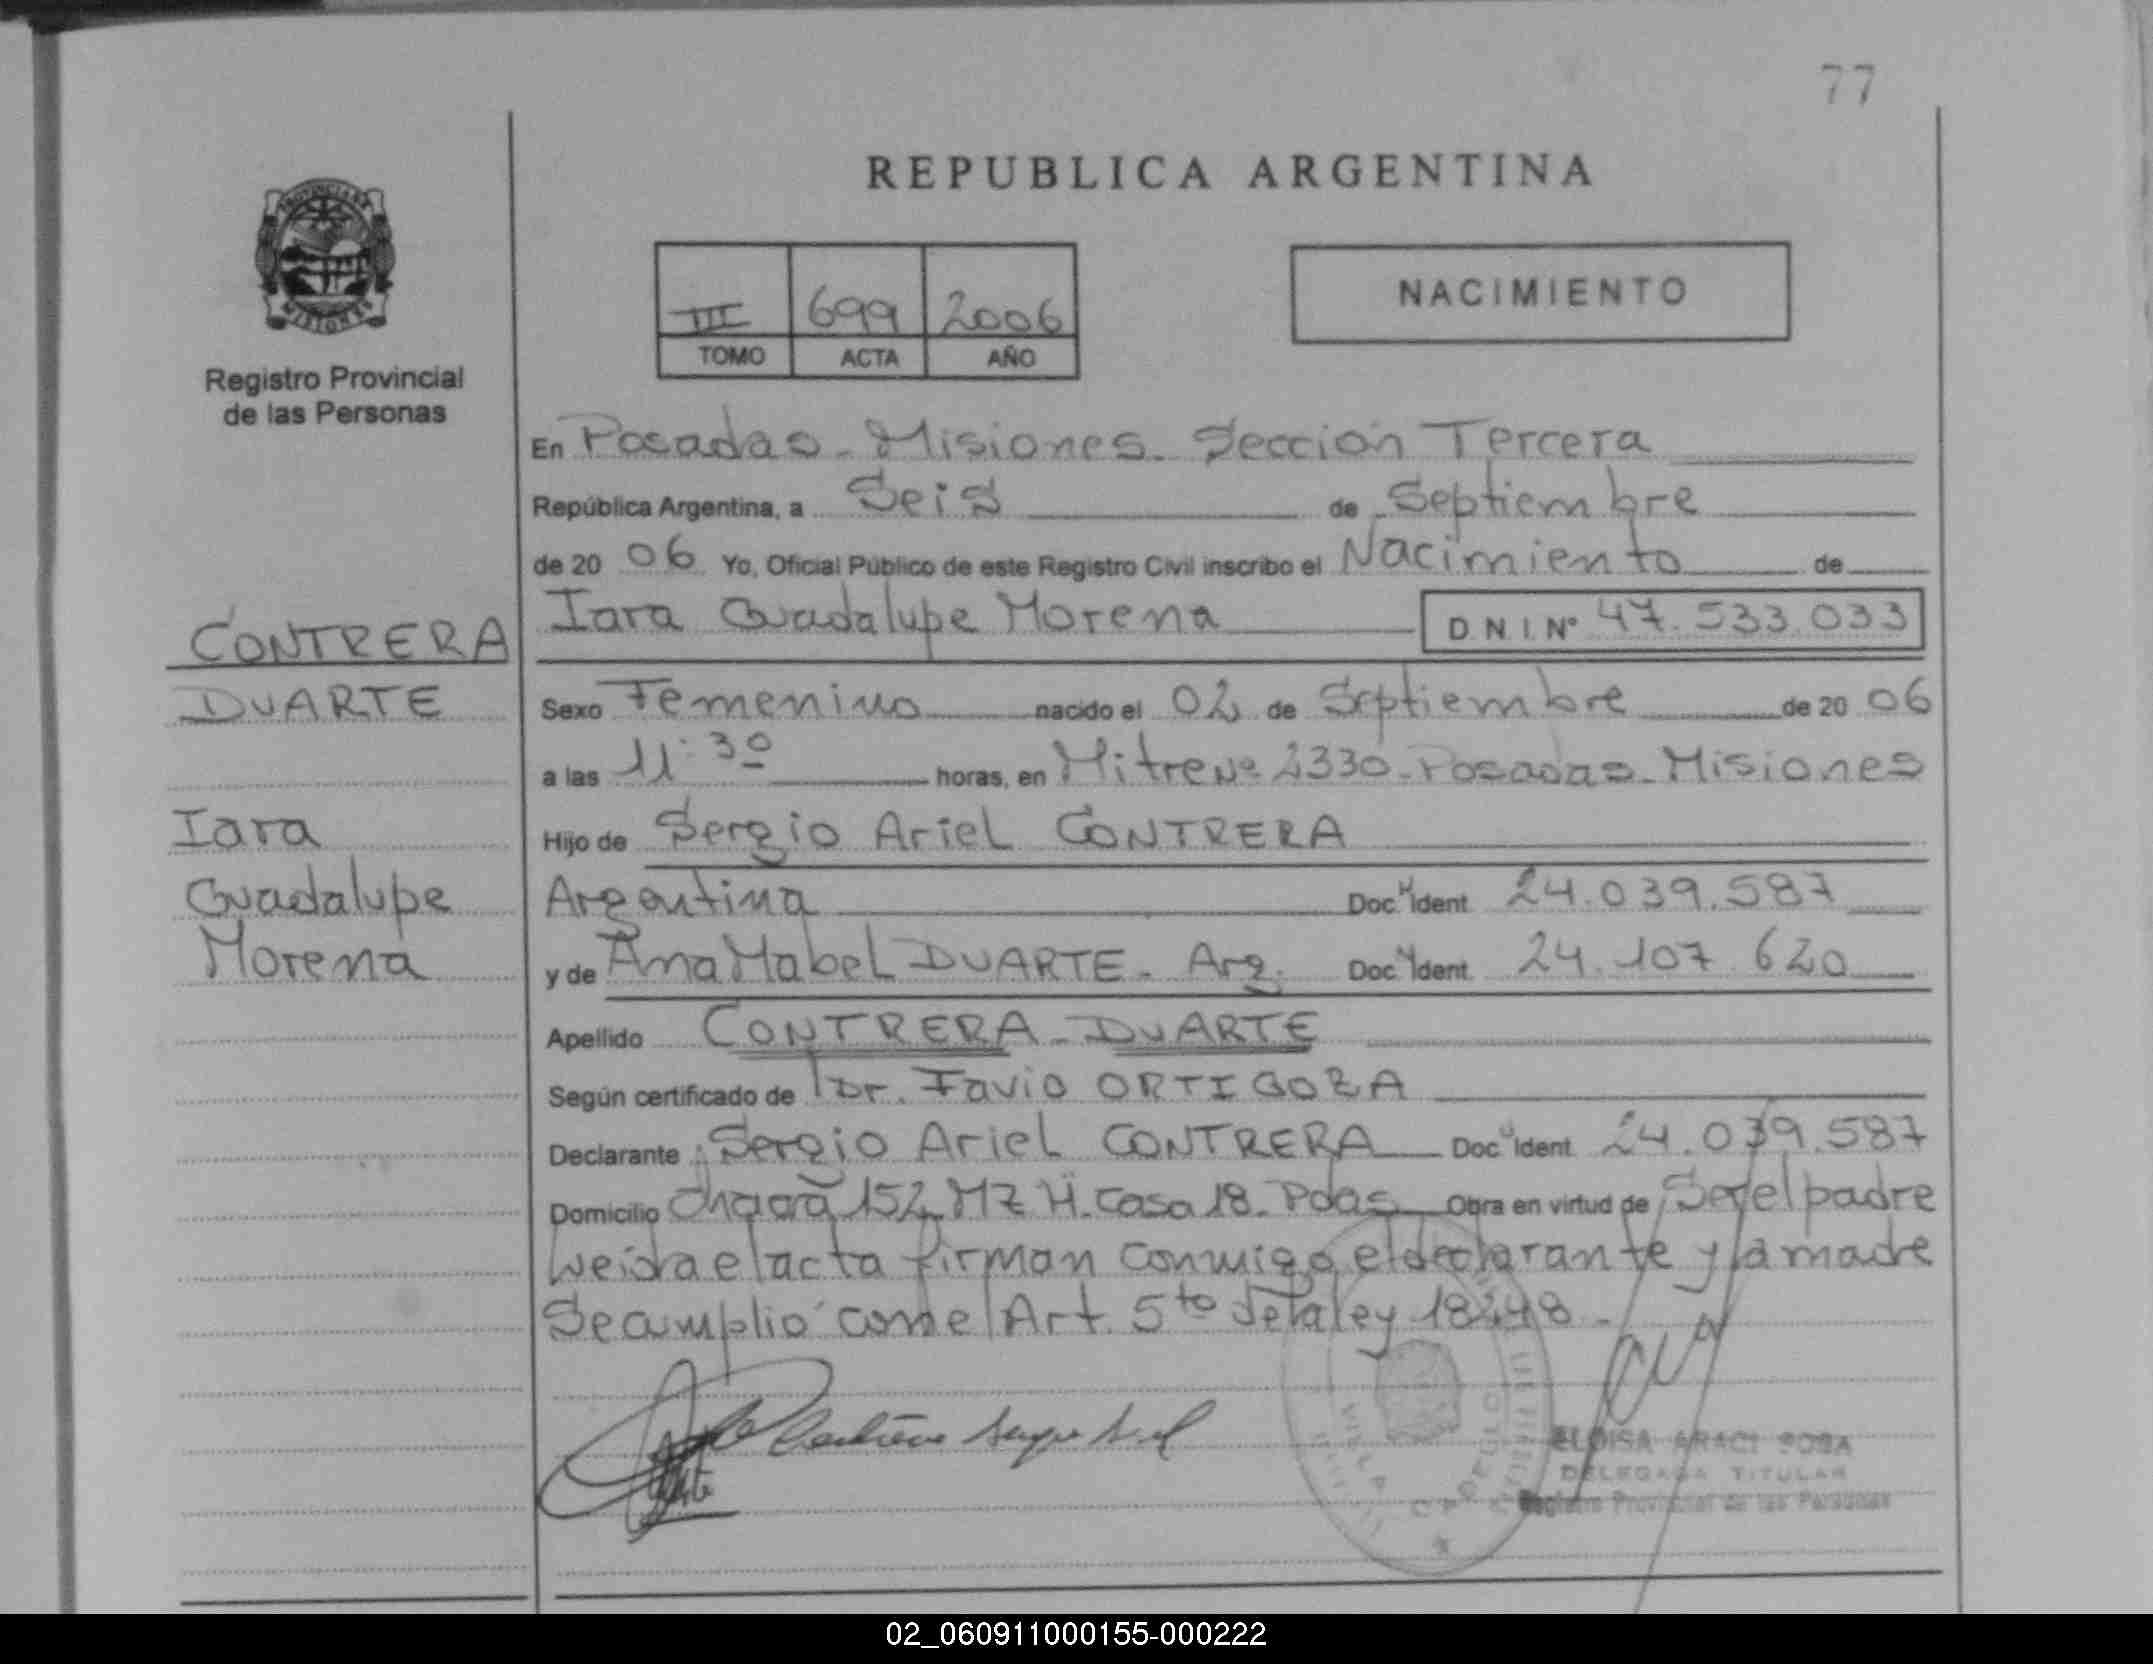 77
REPUBLICA ARGENTINA
III 699 2006
TOMO ACTA AÑO
NACIMIENTO
PROVINCIA DE MISIONES
Registro Provincial
de las Personas
CONTRERA
DUARTE
Iara
Guadalupe
Morena
En Posadas - Misiones - Sección Tercera
República Argentina, a Seis de Septiembre
de 20 06 Yo, Oficial Público de este Registro Civil inscribo el Nacimiento de
Iara Guadalupe Morena D N I Nº 47.533.033
Sexo Femenino nacido el 02 de Septiembre de 20 06
a las 11:30 horas, en Mitre Nº 2330 - Posadas - Misiones
Hijo de Sergio Ariel CONTRERA
Argentina Doc Ident 24.039.587
y de Ana Mabel DUARTE - Arg. Doc Ident 24.107.620
Apellido CONTRERA - DUARTE
Según certificado de Dr. Favio ORTIGOZA
Declarante Sergio Ariel CONTRERA Doc Ident 24.039.587
Domicilio Chacra 152 MZ H. Casa 18. Pdas Obra en virtud de Ser el padre
Leida el acta firman conmigo el declarante y la madre
Se cumplio con el Art. 5to de la ley 18248 -
ELOISA ARACI SOSA
DELEGADA TITULAR
Registro Provincial de las Personas
02_060911000155-000222